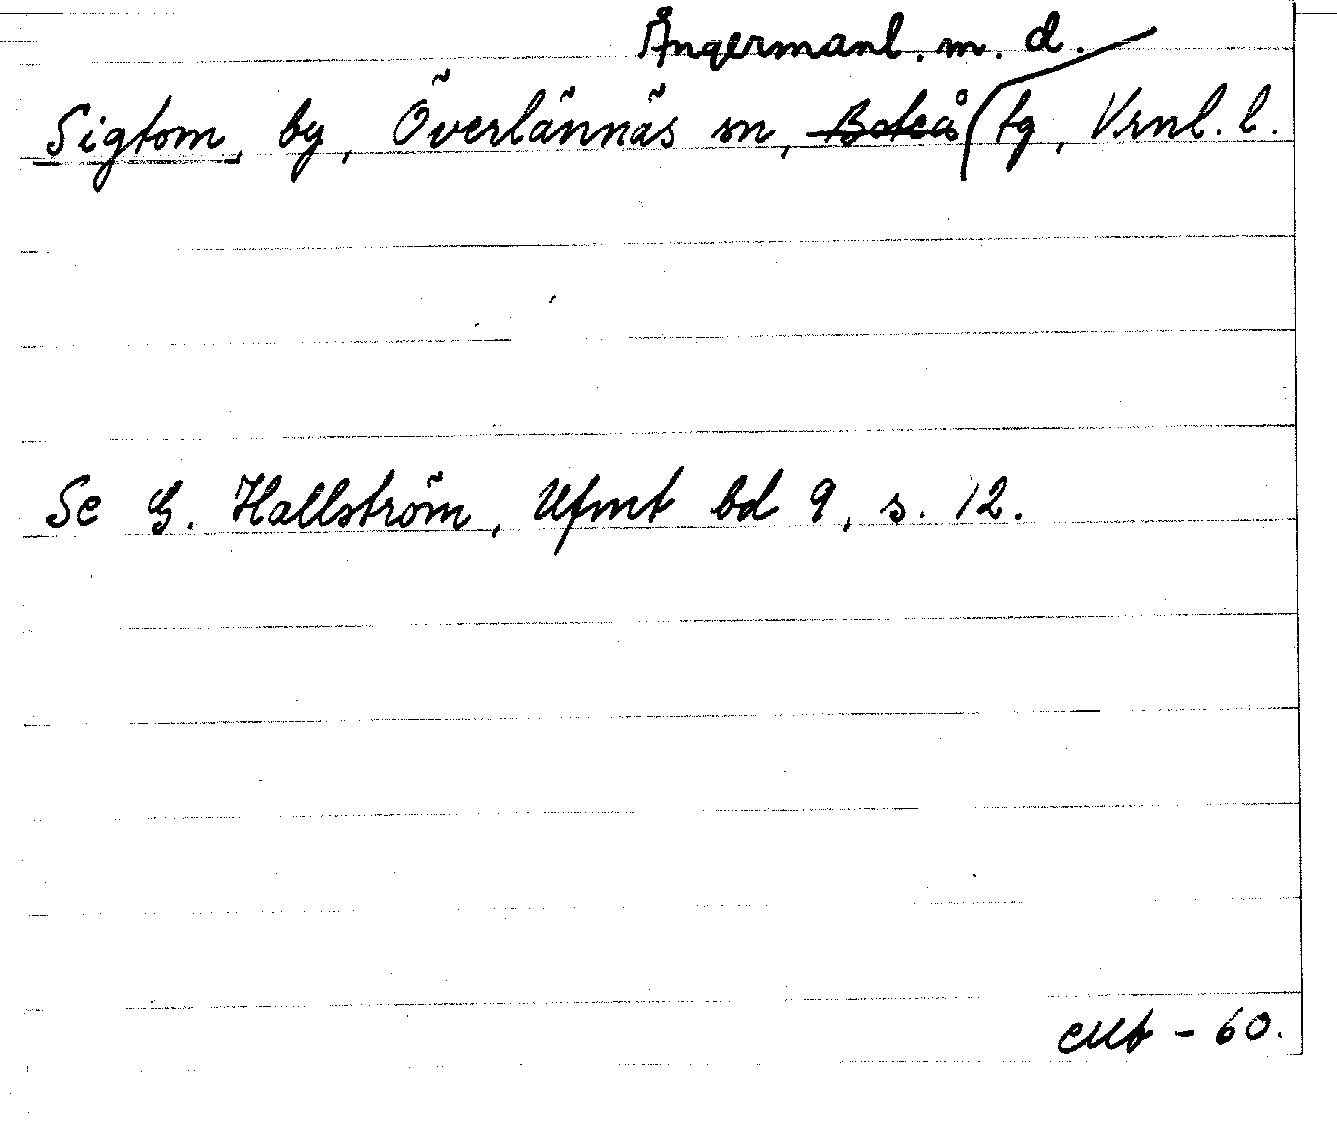 Ångermanl. m. d.
Sigtom, by, Överlännäs sn, Boteå tg, Vrnl. l.
Se G. Hallström, Ufmt bd 9, s. 12.
- 60.